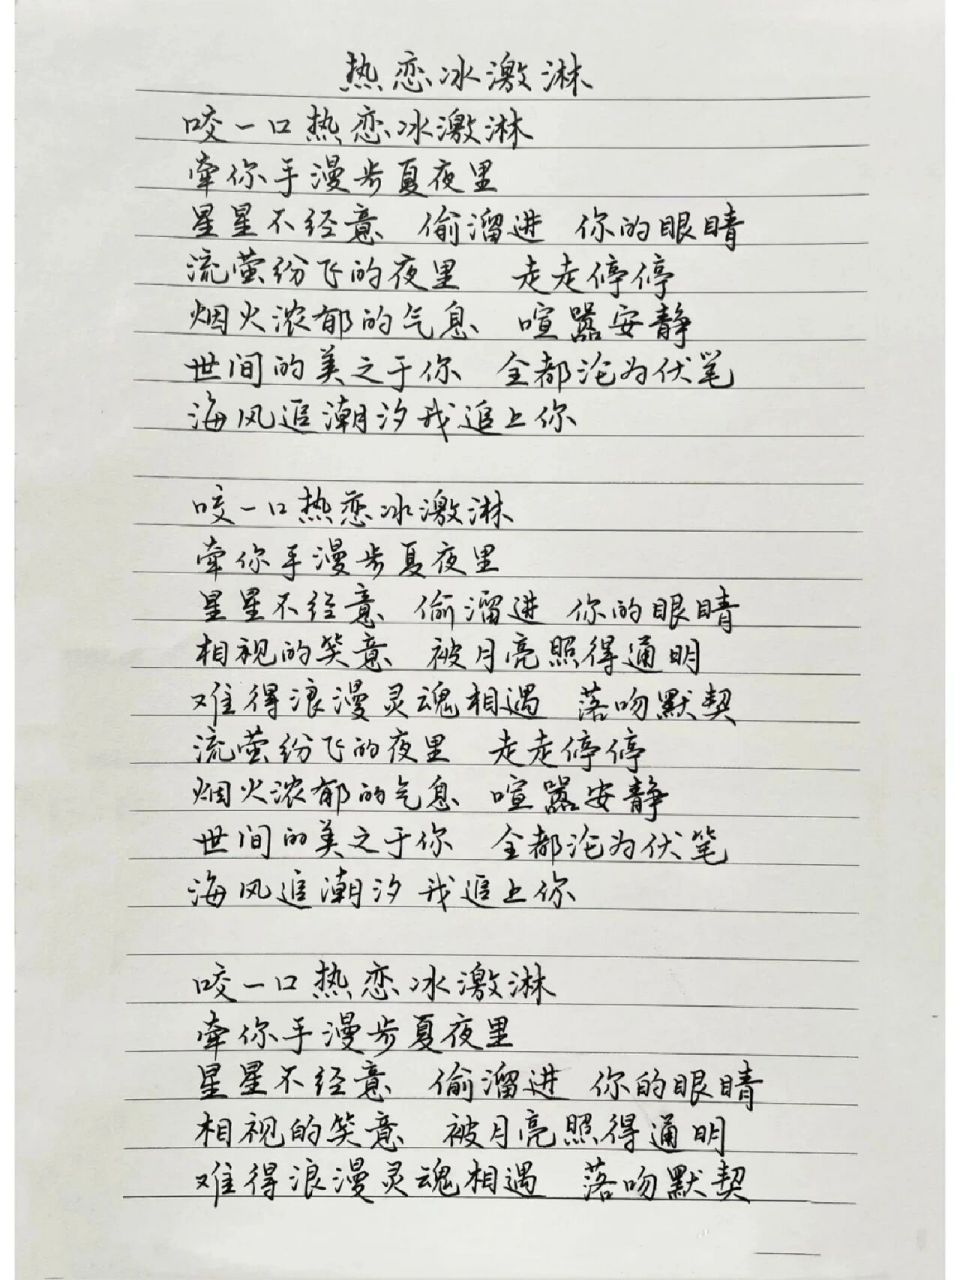 热恋冰激淋
咬一口热恋冰激淋
牵你手漫步夏夜里
星星不经意 偷溜进 你的眼睛
流萤纷飞的夜里 走走停停
烟火浓郁的气息 喧嚣安静
世间的美之于你 全都沦为伏笔
海风追潮汐我追上你
咬一口热恋冰激淋
牵你手漫步夏夜里
星星不经意 偷溜进 你的眼睛
相视的笑意 被月亮照得通明
难得浪漫灵魂相遇 落吻默契
流萤纷飞的夜里 走走停停
烟火浓郁的气息 喧嚣安静
世间的美之于你 全都沦为伏笔
海风追潮汐 我追上你
咬一口热恋冰激淋
牵你手漫步夏夜里
星星不经意 偷溜进 你的眼睛
相视的笑意 被月亮照得通明
难得浪漫灵魂相遇 落吻默契